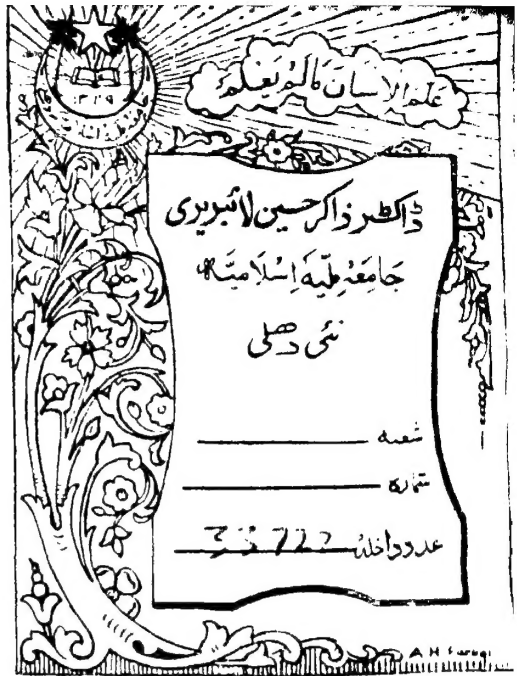 ۱۳۳۹
علم الانسان مالم یعلم
ڈاکٹر ذاکر حسین لائبریری
جامعہ ملیہ اسلامیہ
نئی دھلی
شعبہ
شمارہ
عدد داخلہ
A H Faruqi